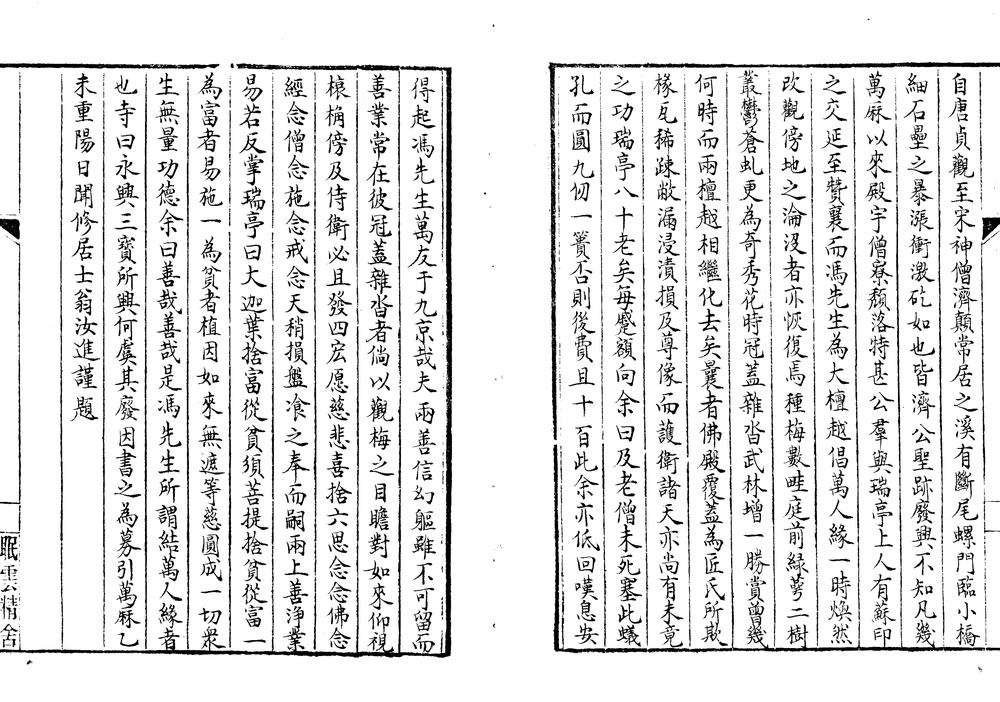 自唐貞觀至宋神僧濟顛常居之溪有斷尾螺門臨小橋
細石壘之暴漲衝激矻如也皆濟公聖跡廢興不知凡幾
萬厤以來殿宇僧寮頽落特甚公羣與瑞亭上人有蘇印
之交延至贊襄而馮先生為大檀越倡萬人緣一時煥然
改觀傍地之淪沒者亦恢復焉種梅數畦庭前緑萼二樹
叢鬱蒼虬更為奇秀花時冠蓋雜沓武林增一勝賞曾幾
何時而兩檀越相繼化去矣曩者佛殿覆蓋為匠氏所欺
椽瓦稀疎敝漏浸漬損及尊像而護衛諸天亦尚有未竟
之功瑞亭八十老矣每蹙額向余曰及老僧未死塞此蟻
孔而圓九仞一簣否則後費且十百此余亦低回嘆息安
得起馮先生萬友于九京哉夫兩善信幻軀雖不可留而
善業常在彼冠蓋雜沓者倘以觀梅之目瞻對如來仰視
榱桷傍及侍衛必且發四宏愿慈悲喜捨六思念念佛念
經念僧念施念戒念天稍損盤飡之奉而嗣兩上善淨業
易若反掌瑞亭曰大迦葉捨富從貧須菩提捨貧從富一
為富者易施一為貧者植因如來無遮等慈圓成一切衆
生無量功德余曰善哉善哉是馮先生所謂結萬人緣者
也寺曰永興三寶所興何虞其廢因書之為募引萬厤乙
未重陽日聞修居士翁汝進謹題
眠雲精舍